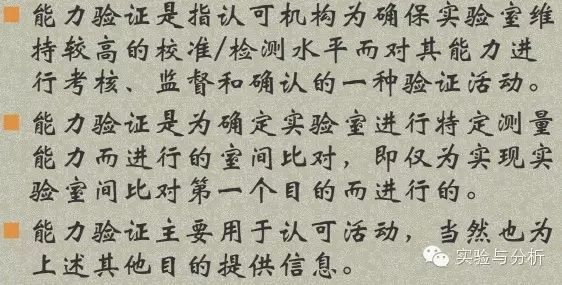 能力验证是指认可机构为确保实验室维
持较高的校准/检测水平而对其能力进
行考核、监督和确认的一种验证活动。
能力验证是为确定实验室进行特定测量
能力而进行的室间比对，即仅为实现实
验室间比对第一个目的而进行的。
能力验证主要用于认可活动，当然也为
上述其他目的提供信息。
实验与分析